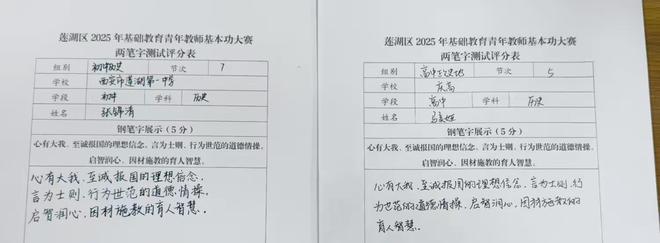 莲湖区 2025 年基础教育青年教师基本功大赛
两笔字测试评分表
组别 初中历史 节次 7
学校 西安市莲湖第一中学
学段 初中 学科 历史
姓名 张锦清
钢笔字展示（5 分）
心有大我、至诚报国的理想信念。言为士则、行为世范的道德情操。
启智润心、因材施教的育人智慧。
心有大我、至诚报国的理想信念.
言为士则、行为世范的道德情操.
启智润心、因材施教的育人智慧.
莲湖区 2025 年基础教育青年教师基本功大赛
两笔字测试评分表
组别 高中 节次 5
学校 庆高
学段 高中 学科 历史
姓名
钢笔字展示（5 分）
心有大我、至诚报国的理想信念。言为士则、行为世范的道德情操。
启智润心、因材施教的育人智慧。
心有大我、至诚报国的理想信念、言为士则、行
为世范的道德情操、启智润心、因材施教的
育人智慧.